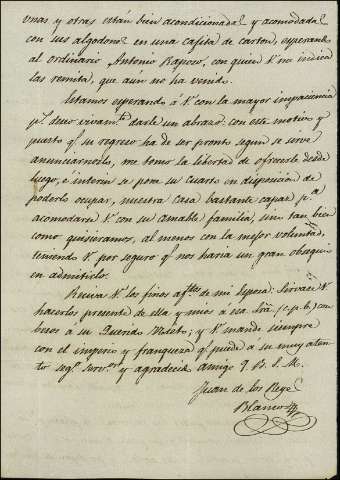 unas y otras están bien acondicionadas y acomodadas
con sus algodones en una cajita de carton, esperando
al ordinario Antonio Raposo, con quien V. me indica
las remita, que aún no ha venido.
Estamos esperando á V. con la mayor impaciencia
pr. deseo vivamte. darle un abrazo: con este motivo y
puesto q. su regreso ha de ser pronto segun se sirve
anunciarnoslo, me tomo la libertad de ofrecerle desde
luego, é interin se pone su cuarto en disposicion de
poderlo ocupar, nuestra casa bastante capaz pa.
acomodarse V. con su amable familia, sin tan bien
como quisieramos, al menos con la mejor voluntad,
teniendo V. por seguro q. nos haria un gran obsequio
en admitirlo.
Reciva V. los finos aftos. de mi esposa: sirvase V.
hacerlos presente de ella y mios á esa Sra. (c.p.b.) con
besos a su Querido ; y V. mande siempre
con el imperio y franqueza q. puede á su muy aten
to segº. servor. y agradecido amigo Q. B. S. M.
Juan de los Reyes
Blanco